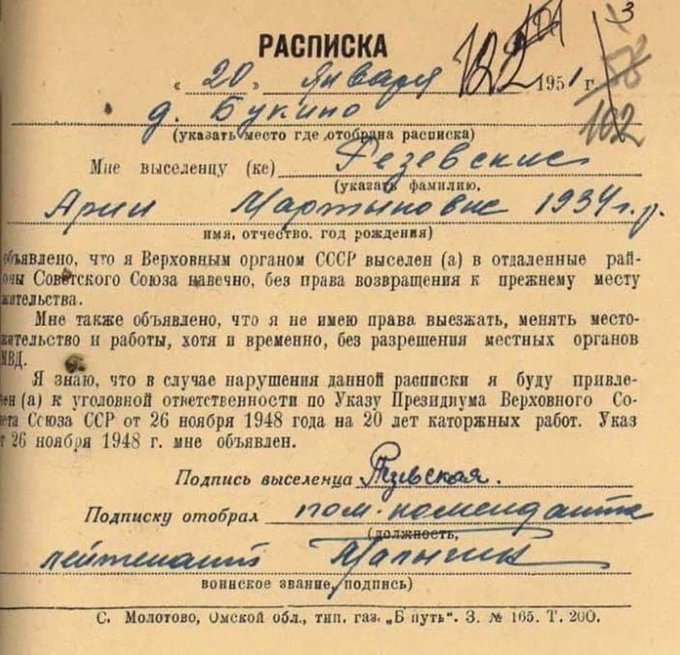 3
РАСПИСКА
122
„20“ января 1951 г.
102
д. Букино
(указать место где отобрана расписка)
Мне выселенцу (ке) Резевские
(указать фамилию,
Арии Мартыновне 1934 г. р.
имя, отчество. год рождения)
объявлено, что я Верховным органом СССР выселен (а) в отдаленные рай-
оны Советского Союза навечно, без права возвращения к прежнему месту
жительства.
Мне также объявлено, что я не имею права выезжать, менять место-
жительство и работы, хотя и временно, без разрешения местных органов
МВД.
Я знаю, что в случае нарушения данной расписки я буду привле-
чен (а) к уголовной ответственности по Указу Президиума Верховного Со-
вета Союза ССР от 26 ноября 1948 года на 20 лет каторжных работ. Указ
от 26 ноября 1948 г. мне объявлен.
Подпись выселенца Резевская.
Подписку отобрал пом. коменданта
(должность,
лейтенант Малыгин
воинское звание, подпись)
С. Молотово, Омской обл., тип. газ. „Б путь“. З. № 165. Т. 200.